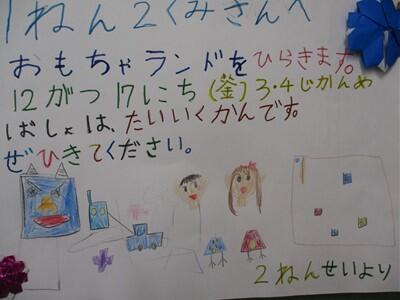 1ねん2くみさんへ
おもちゃランドをひらきます。
12がつ17にち(釜)3・4じかんめ
ばしょは、たいいくかんです。
ぜひきてください。
2ねんせいより